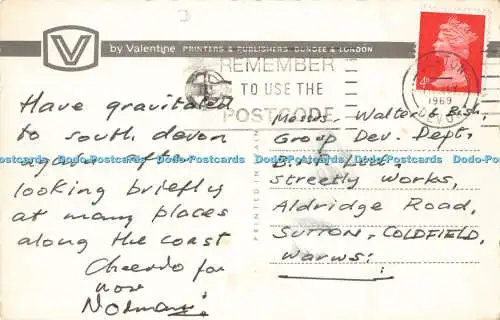 V by Valentine PRINTERS & PUBLISHERS, DUNDEE & LONDON
REMEMBER
TO USE THE
POSTCODE
1969
4D
Have gravitated
to south devon
again after
looking briefly
at many places
along the coast
Cheerio for
now
Norman.
PRINTED IN
Messrs. Walter & Bish,
Group Dev. Dept.
Ltd.
Streetly Works,
Aldridge Road,
SUTTON-COLDFIELD,
Warws:
Dodo-Postcards Dodo-Postcards Dodo-Postcards Dodo-Postcards Dodo-Postcards Dodo-Postcards